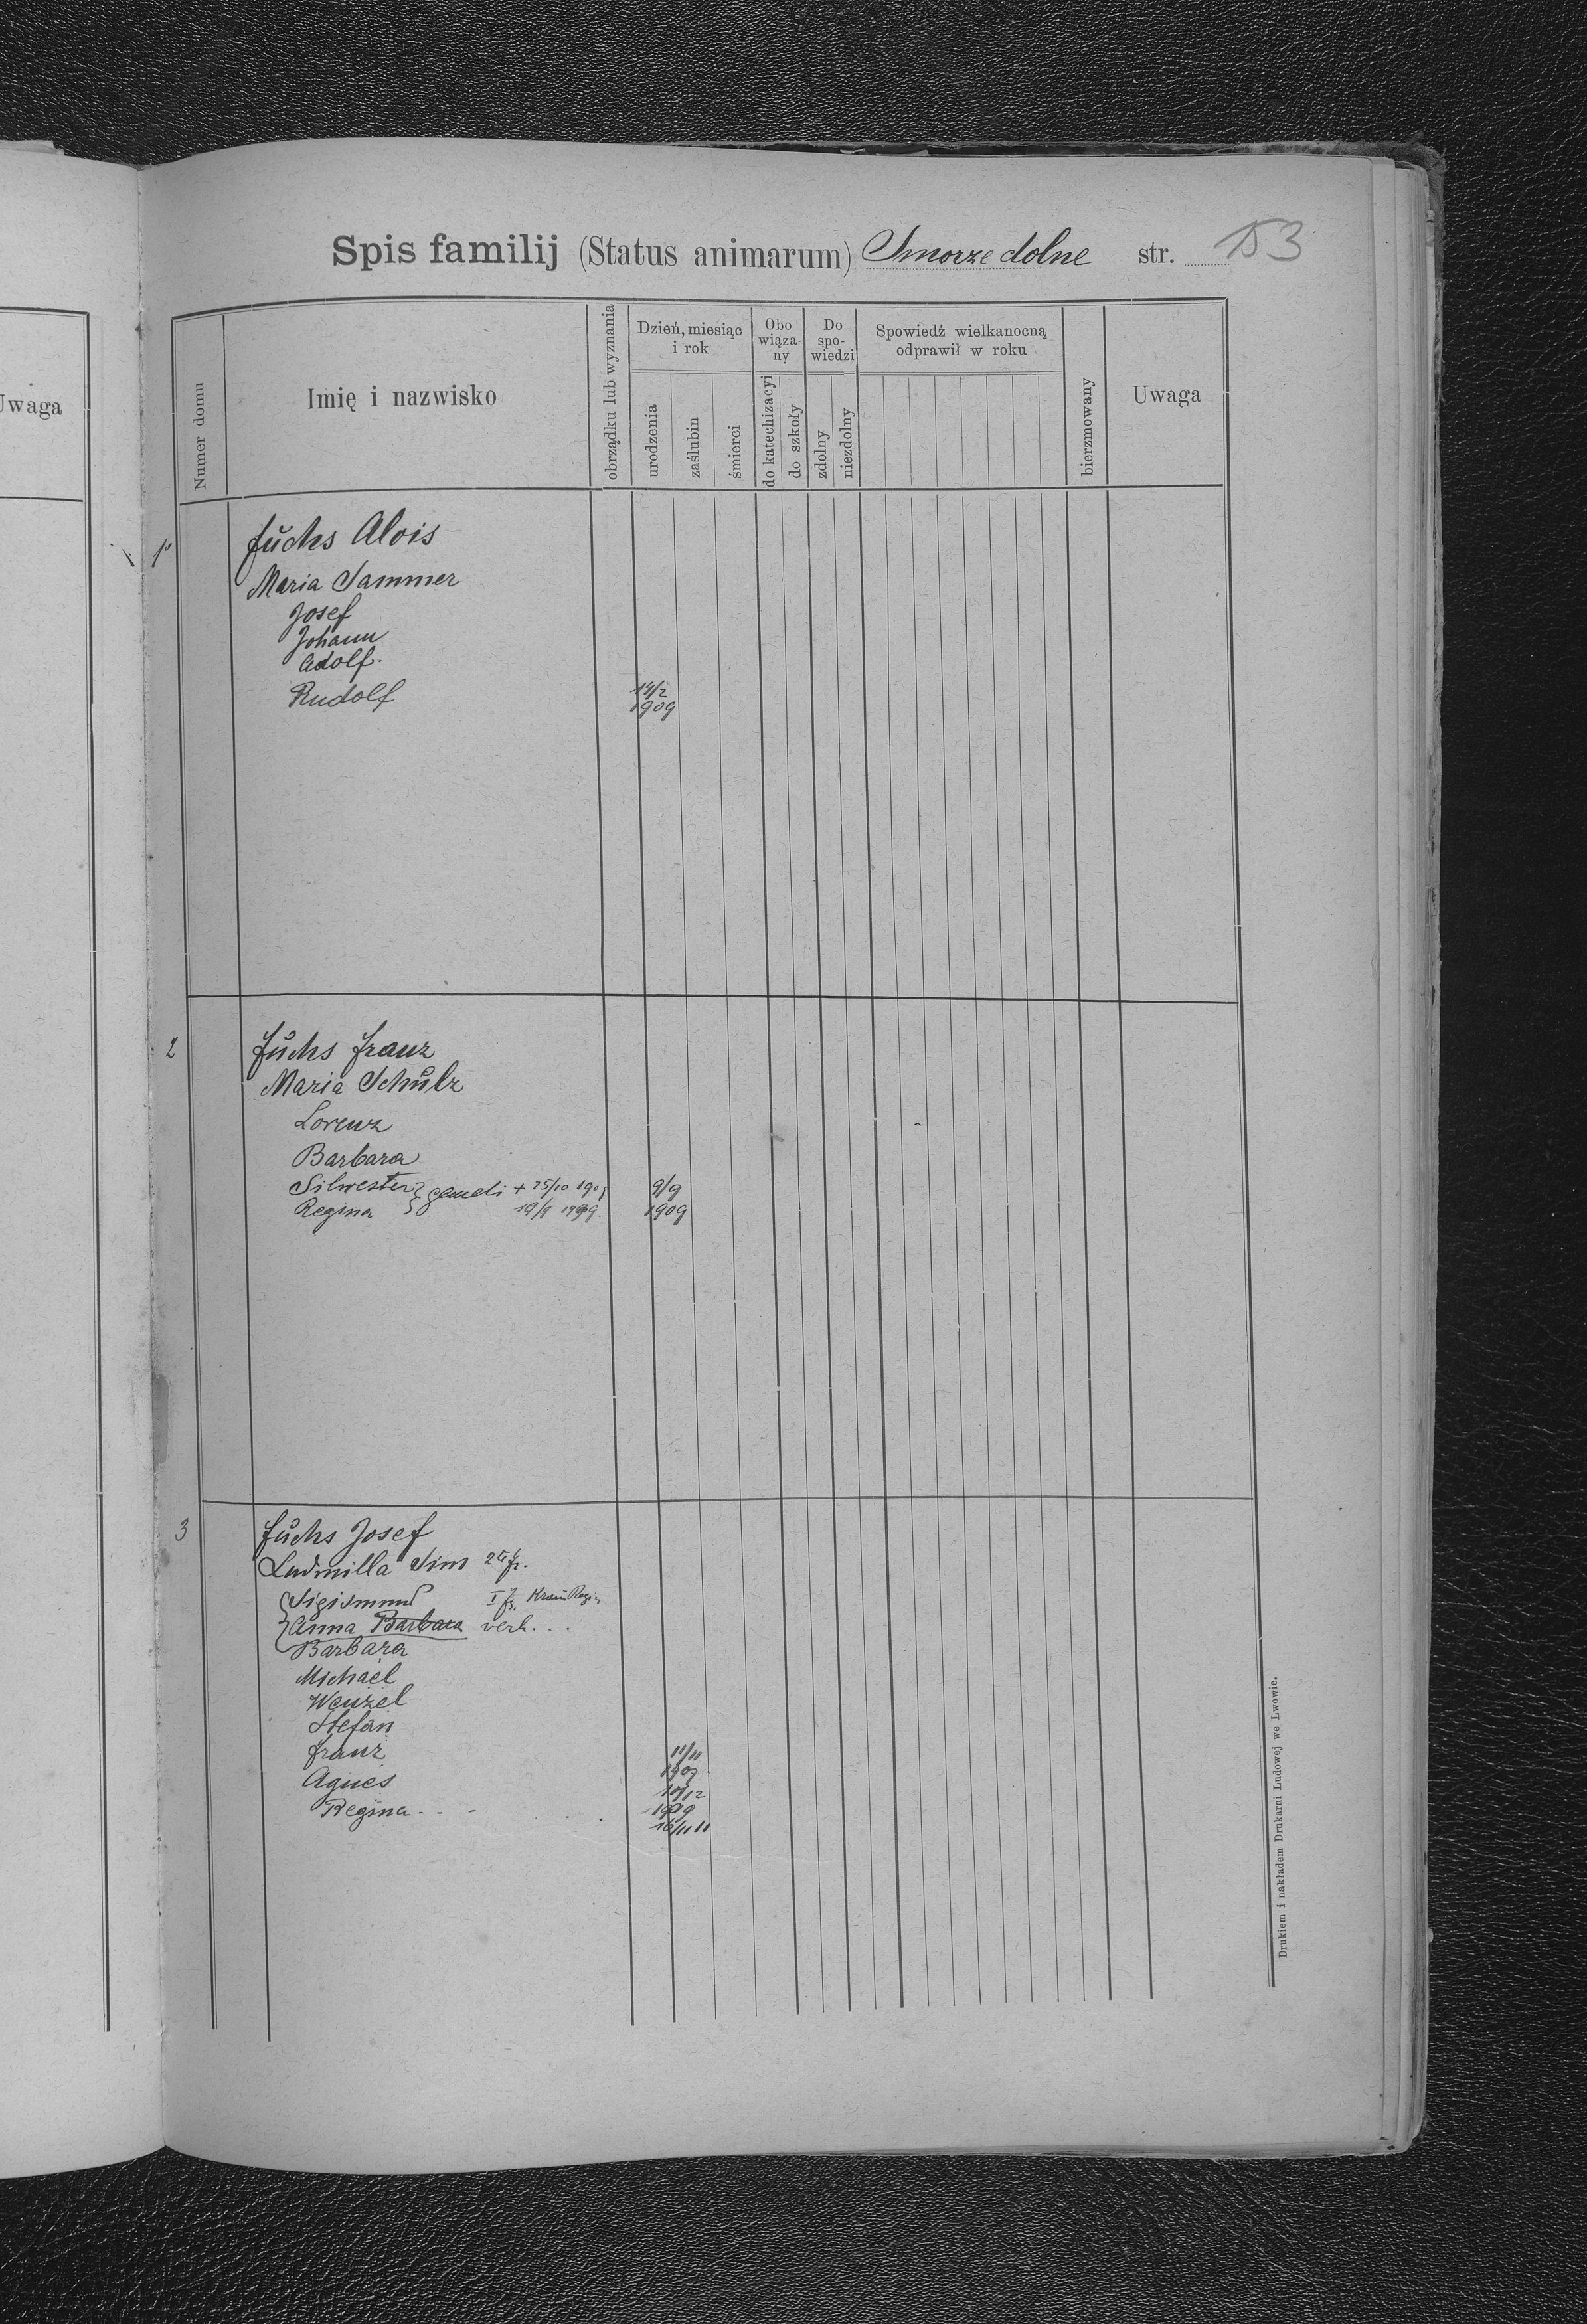 Uwaga
Spis familij (Status animarum) Smorze dolne str. 153
Numer domu
Imię i nazwisko
obrządku lub wyznania
Dzień, miesiąc i rok
urodzenia
zaślubin
śmierci
Obo wiąza- ny
do katechizacyi
do szkoły
Do spo- wiedzi
zdolny
niezdolny
Spowiedź wielkanocną
odprawił w roku
bierzmowany
Uwaga
1
Fuchs Alois
Maria Sammer
Josef
Johann
Adolf.
Rudolf 14/2
1909
2
Fuchs Franz
Maria Schulz
Lorenz
Barbara
Silvester gemeli + 25/10 1909 9/9
Regina 1909
3
Fuchs Josef
Ludmilla Sim
Sigismund
Anna Barbara verh. . .
Barbara
Michael
Wenzel
Stefan
Franz 11/11
Agnes
Regina . . . 16/11 11
Drukiem i nakładem Drukarni Ludowej we Lwowie.